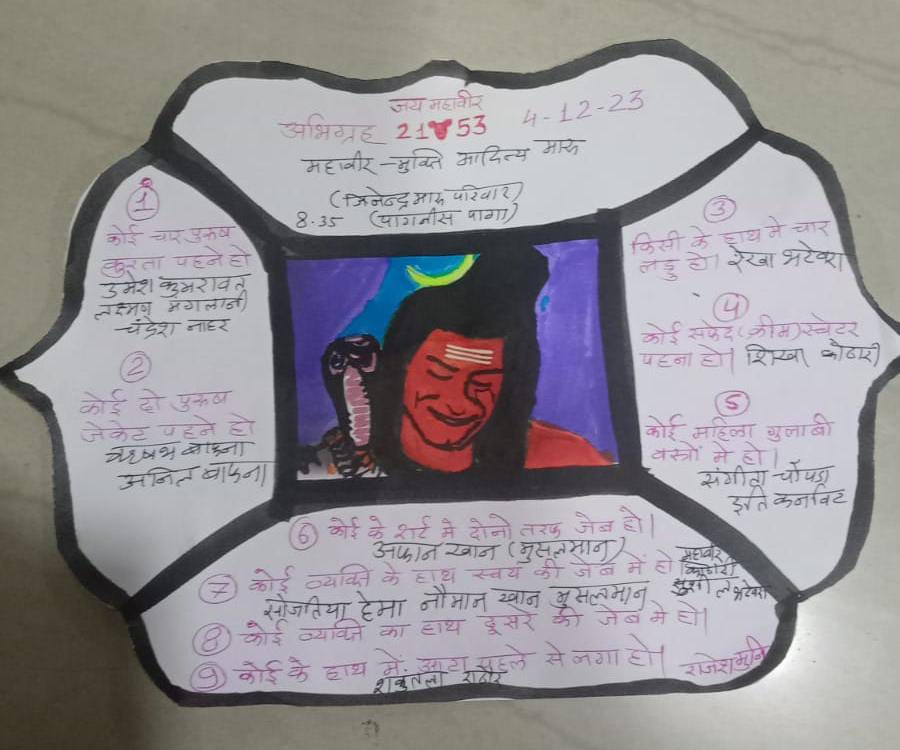 जय महावीर
अभिग्रह 21 53 4-12-23
महावीर - मुक्ति आदित्य मारू
(जिनेन्द्र मारू परिवार)
8.35 (पागनीस पागा)
①
कोई चार पुरुष
कुरता पहने हो
उमेश कुमरावत
लक्ष्मण मंगलानी
चंद्रेश नाहर
②
कोई दो पुरुष
जेकेट पहने हो
ऋषभ बाफना
अनिल बाफना
③
किसी के हाथ मे चार
लड्डु हो। रेखा भटेवरा
④
कोई सफेद (क्रीम) स्वेटर
पहना हो। शिखा कोठारी
⑤
कोई महिला गुलाबी
वस्त्रों मे हो।
संगीता चौपडा
इति कर्नावट
⑥ कोई के शर्ट मे दोनो तरफ जेब हो।
अफान खान (मुसलमान)
⑦ कोई व्यक्ति के हाथ स्वयं की जेब में हो महावीर
कोठारी
सुशील भटेवरा
हेमा नौमान खान मुसलमान
⑧ कोई व्यक्ति का हाथ दूसरे की जेब मे हो।
⑨ कोई के हाथ में आटा पहले से लगा हो। राजेशमुनि
शकुंतला राठौर